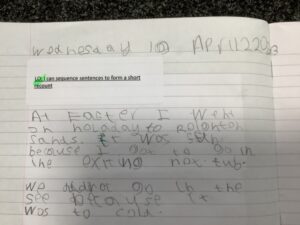 Wednesday 19 April 2023
LO: I can sequence sentences to form a short
recount
At Easter I went
on holaday to
sands. It was
because I got to go in
the hot tub.
We did not go in the
see because it
was to cold.